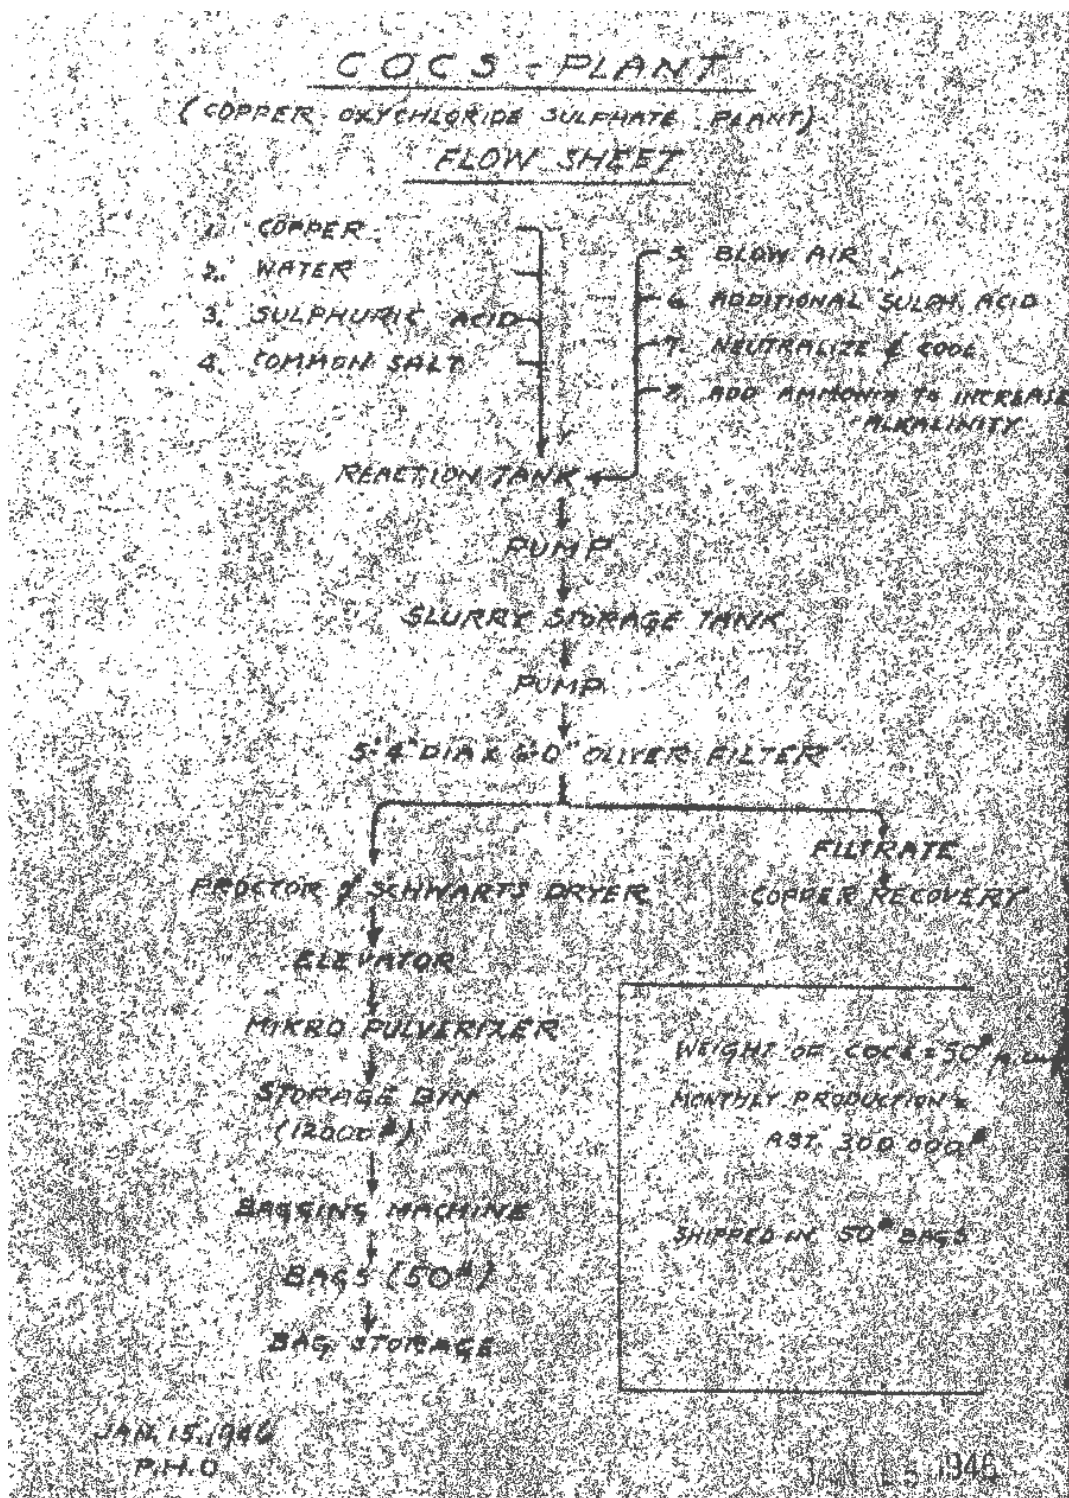 COCS - PLANT
(COPPER OXYCHLORIDE SULPHATE PLANT)
FLOW SHEET
1. COPPER
2. WATER
3. SULPHURIC ACID
4. COMMON SALT
5. BLOW AIR
6. ADDITIONAL SULPH. ACID
7. NEUTRALIZE & COOL
8. ADD AMMONIA TO INCREASE
ALKALINITY
REACTION TANK
PUMP
SLURRY STORAGE TANK
PUMP
5'-4" DIA X 6'-0" OLIVER FILTER
FILTRATE
PROCTOR & SCHWARTS DRYER
COPPER RECOVERY
ELEVATOR
MIKRO PULVERIZER
STORAGE BIN
(12000#)
BAGGING MACHINE
BAGS (50#)
BAG STORAGE
WEIGHT OF COCS = 50#
MONTHLY PRODUCTION
300 000#
SHIPPED IN 50# BAGS
JAN. 15, 1946
P.H.O
1946